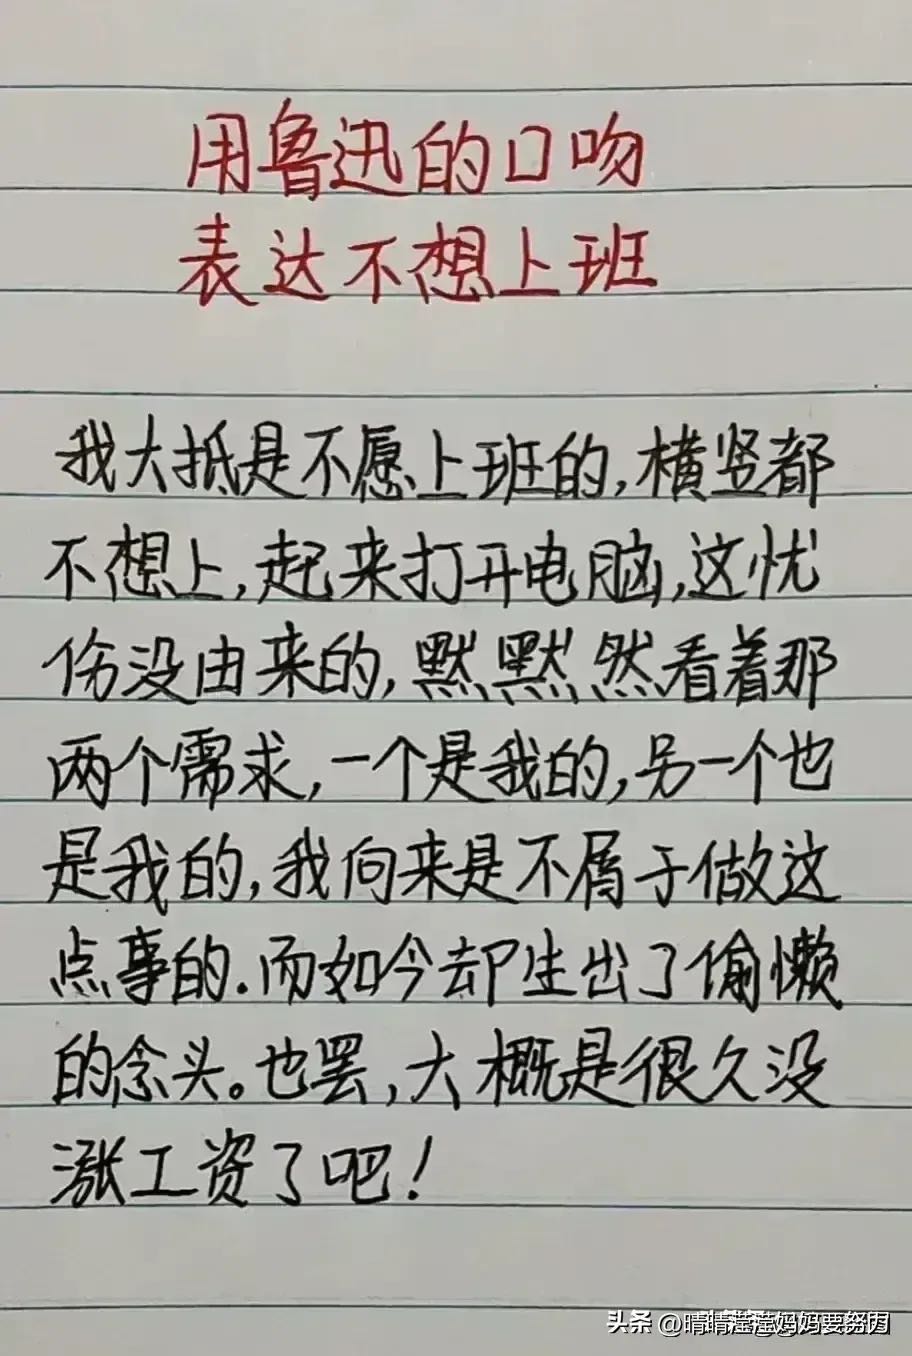 用鲁迅的口吻
表达不想上班
我大抵是不愿上班的,横竖都
不想上,起来打开电脑,这忧
伤没由来的,默默然看着那
两个需求,一个是我的,另一个也
是我的,我向来是不屑于做这
点事的.而如今却生出了偷懒
的念头。也罢,大概是很久没
涨工资了吧!
头条 @晴晴
妈妈要努力